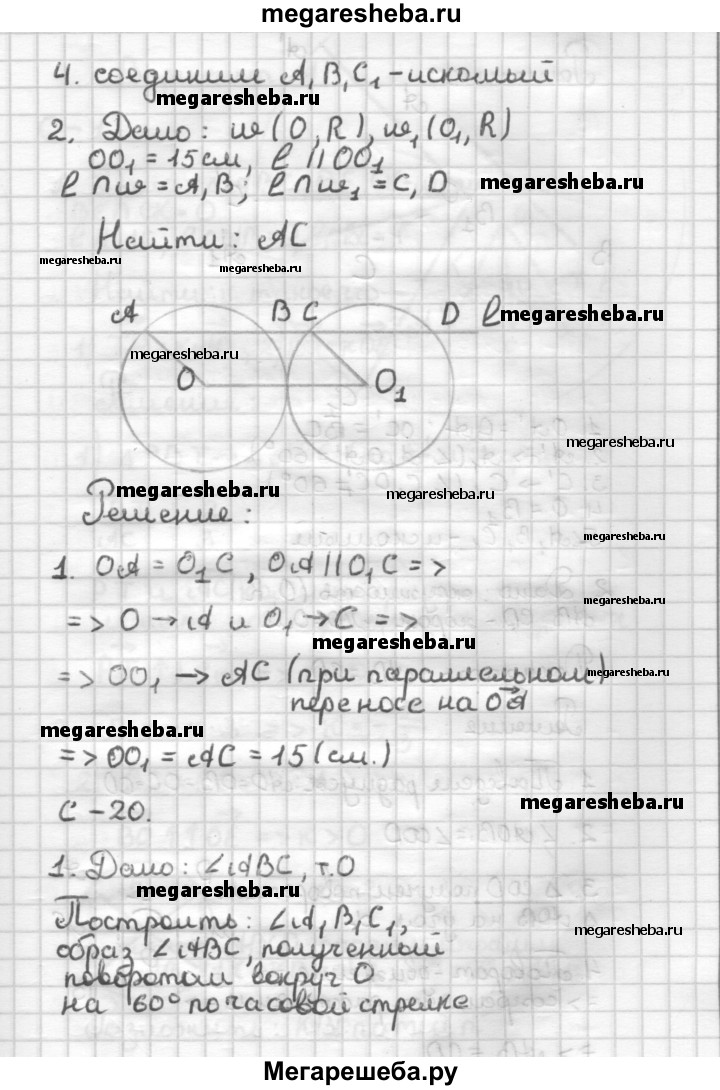 megaresheba.ru
4. соединим A₁B₁C₁ - искомый
megaresheba.ru
2. Дано: w(O,R), w₁(O₁,R)
OO₁ = 15 см, l || OO₁
l ∩ w = A,B; l ∩ w₁ = C, D
megaresheba.ru
Найти: AC
megaresheba.ru
megaresheba.ru
A B C D l
megaresheba.ru
megaresheba.ru
O O₁
megaresheba.ru
megaresheba.ru
megaresheba.ru
Решение:
megaresheba.ru
1. OA = O₁C, OA || O₁C =>
megaresheba.ru
=> O → A и O₁ → C =>
megaresheba.ru
=> OO₁ → AC (при параллельном)
megaresheba.ru
переносе на OA⃗
megaresheba.ru
=> OO₁ = AC = 15 (см.)
megaresheba.ru
C - 20.
1. Дано: ∠ABC, т.O
megaresheba.ru
Построить: ∠A₁B₁C₁,
образ ∠ABC, полученный
поворотом вокруг O
на 60° по часовой стрелке
Мегарешеба.ру